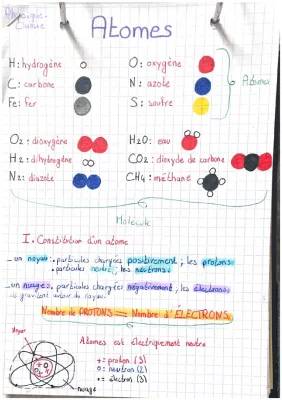 Physique-
Chimie
Atomes
H: hydrogène O: oxygène
C: carbone N: azote
Fe: fer S: soufre
Atomes
O2: dioxygène H2O: eau
H2: dihydrogène CO2: dioxyde de carbone
N2: diazote CH4: méthane
Molécule
I. Constitution d'un atome
_ un noyau: particules chargées positivement; les protons.
• particules neutre; les neutrons.
_ un nuage, particules chargées négativement, les électrons
ils gravitent autour du noyau.
Nombre de PROTONS = Nombre d'ÉLECTRONS
Noyau
Atomes est électriquement neutre
+ = proton (3)
o = neutron (2)
- = électron (3)
nuage